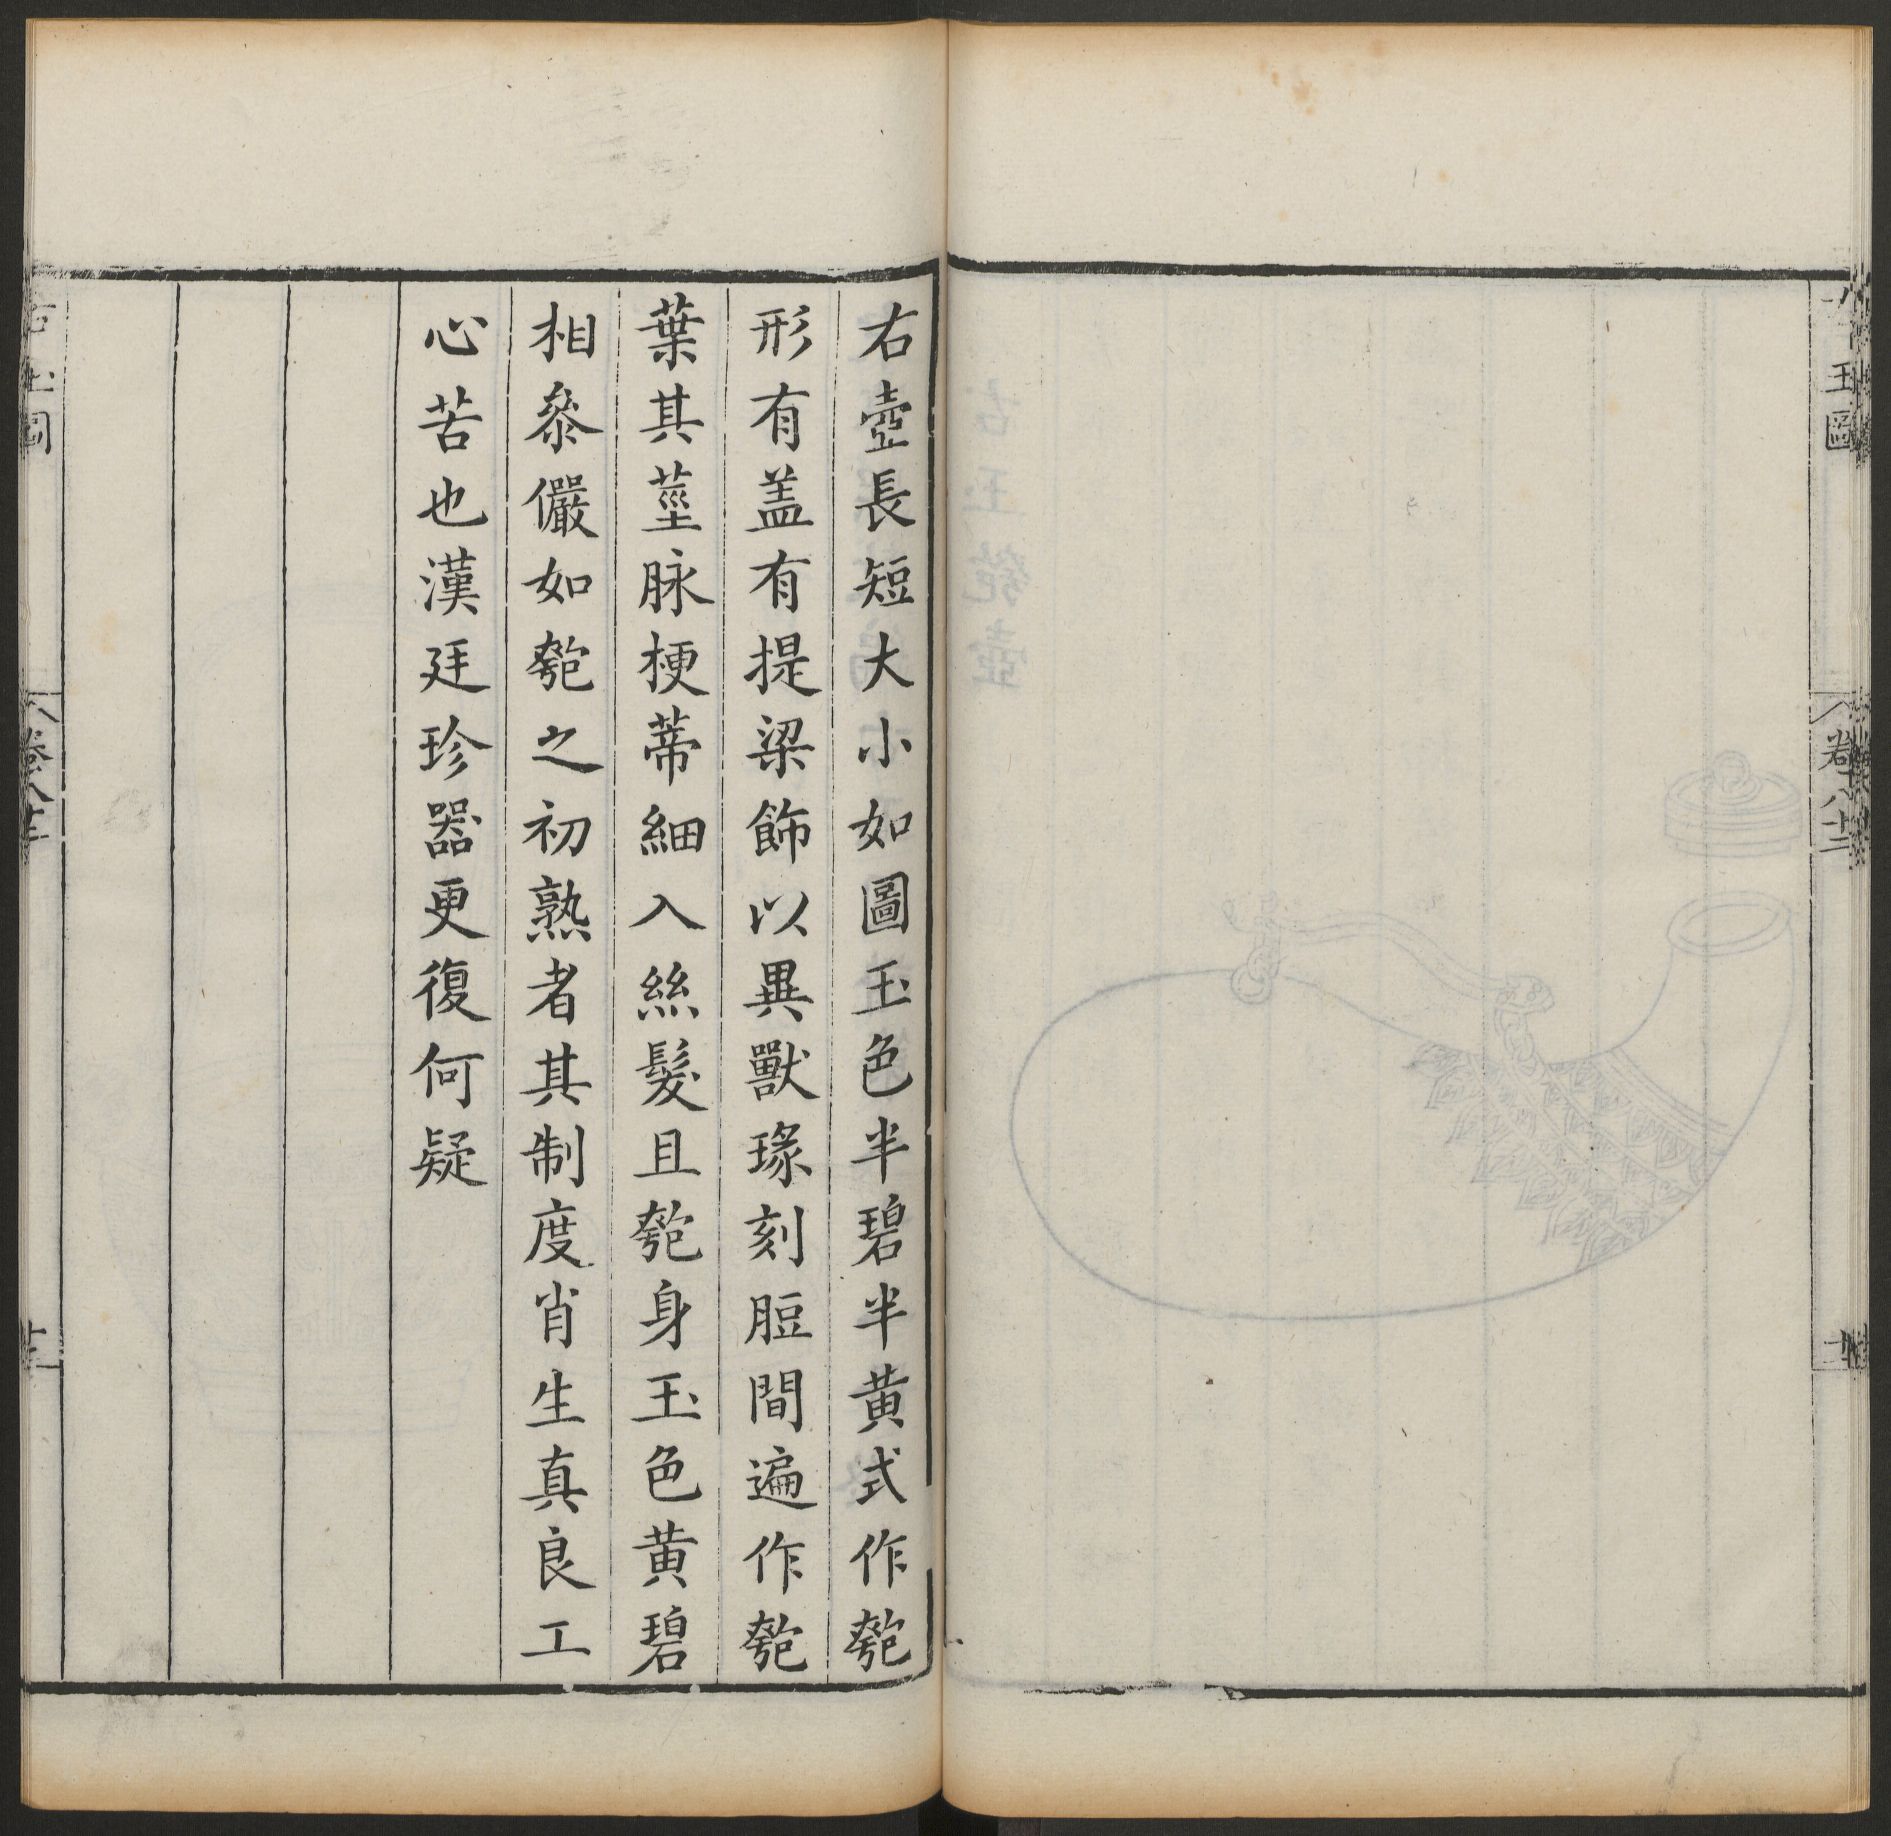 右壺長短大小如圖玉色半碧半黄式作匏
形有盖有提梁飾以異獸瑑刻脰間遍作匏
葉其莖脉梗蒂細入絲髮且匏身玉色黄碧
相叅儼如匏之初熟者其制度肖生真良工
心苦也漢廷珍器更復何疑